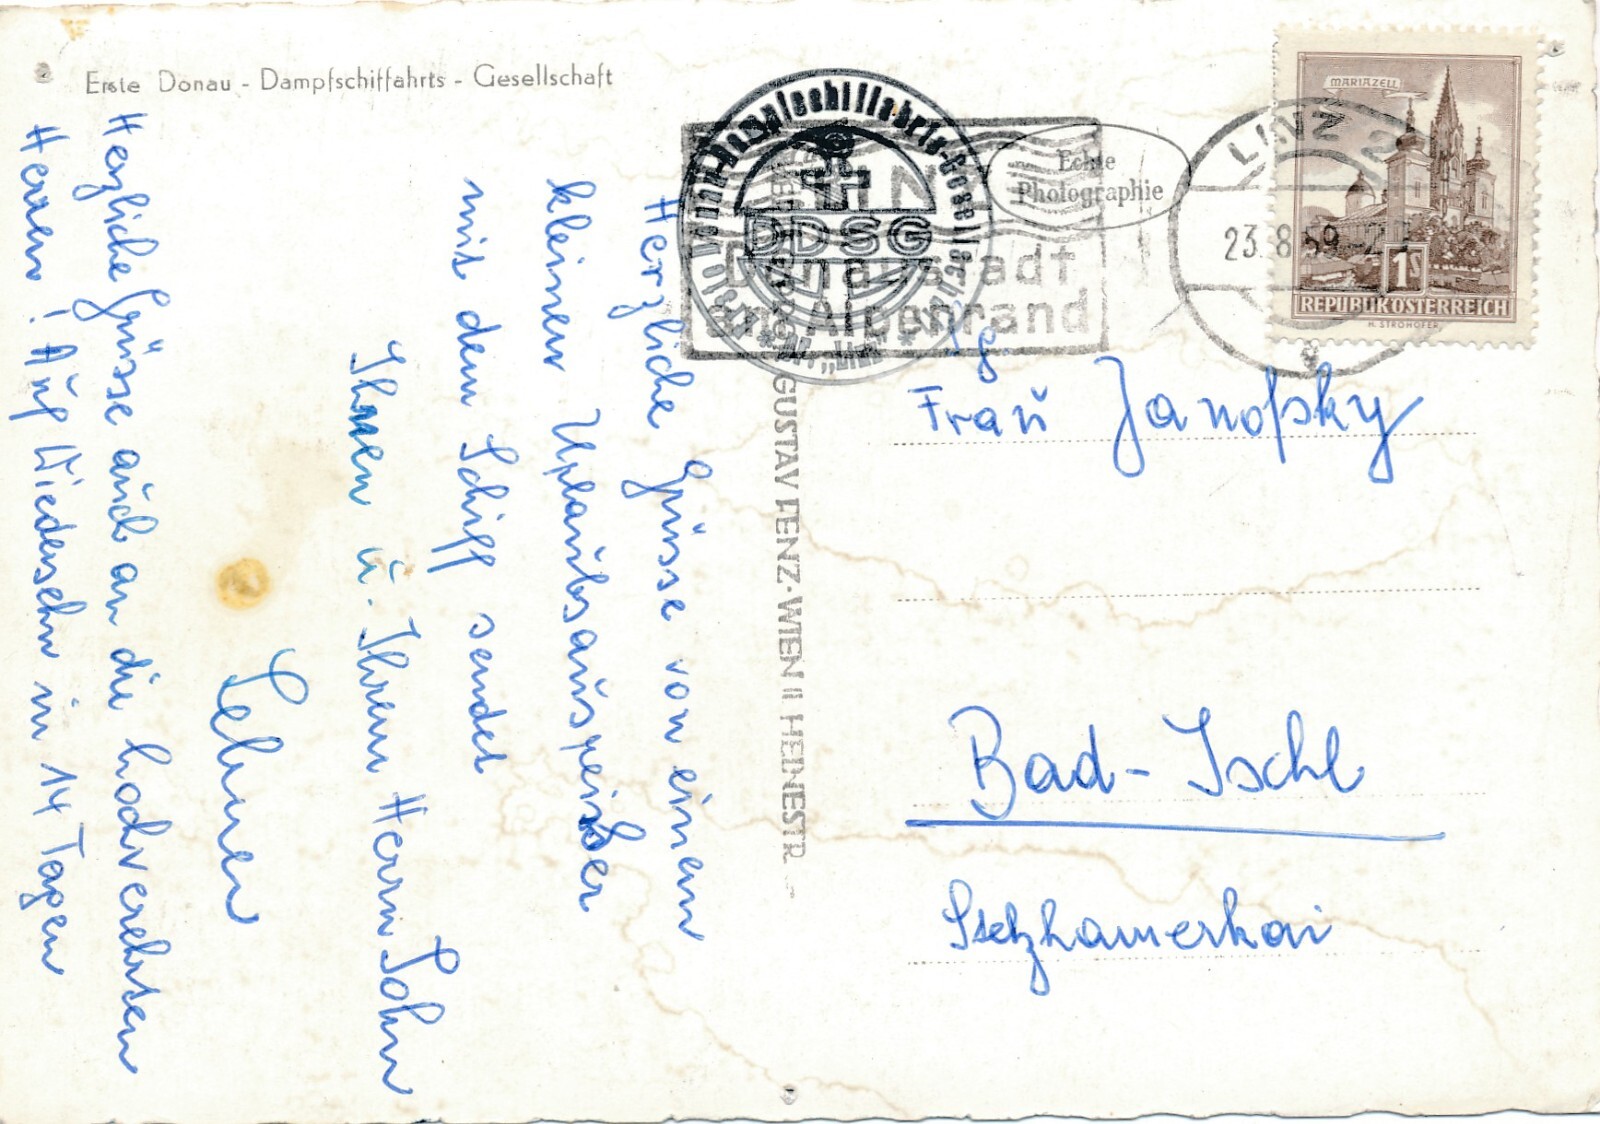 Erste Donau - Dampfschiffahrts - Gesellschaft
Herzliche Grüsse von einem
kleinen Urlaubsausreisser
mit dem Schiff sendet
Ihnen u. Ihrem Herrn Sohn
Herzliche Grüsse auch an die hochverehrten
Herren! Auf Wiedersehn in 14 Tagen
GUSTAV FENZ-WIEN II HEINESTR
DDSG
Donaustadt
am Alpenrand
Echte
Photographie
LINZ 2
23.8.59
MARIAZELL
1S
REPUBLIK ÖSTERREICH
H. STROHOFER
Frau Janofsky
Bad-Ischl